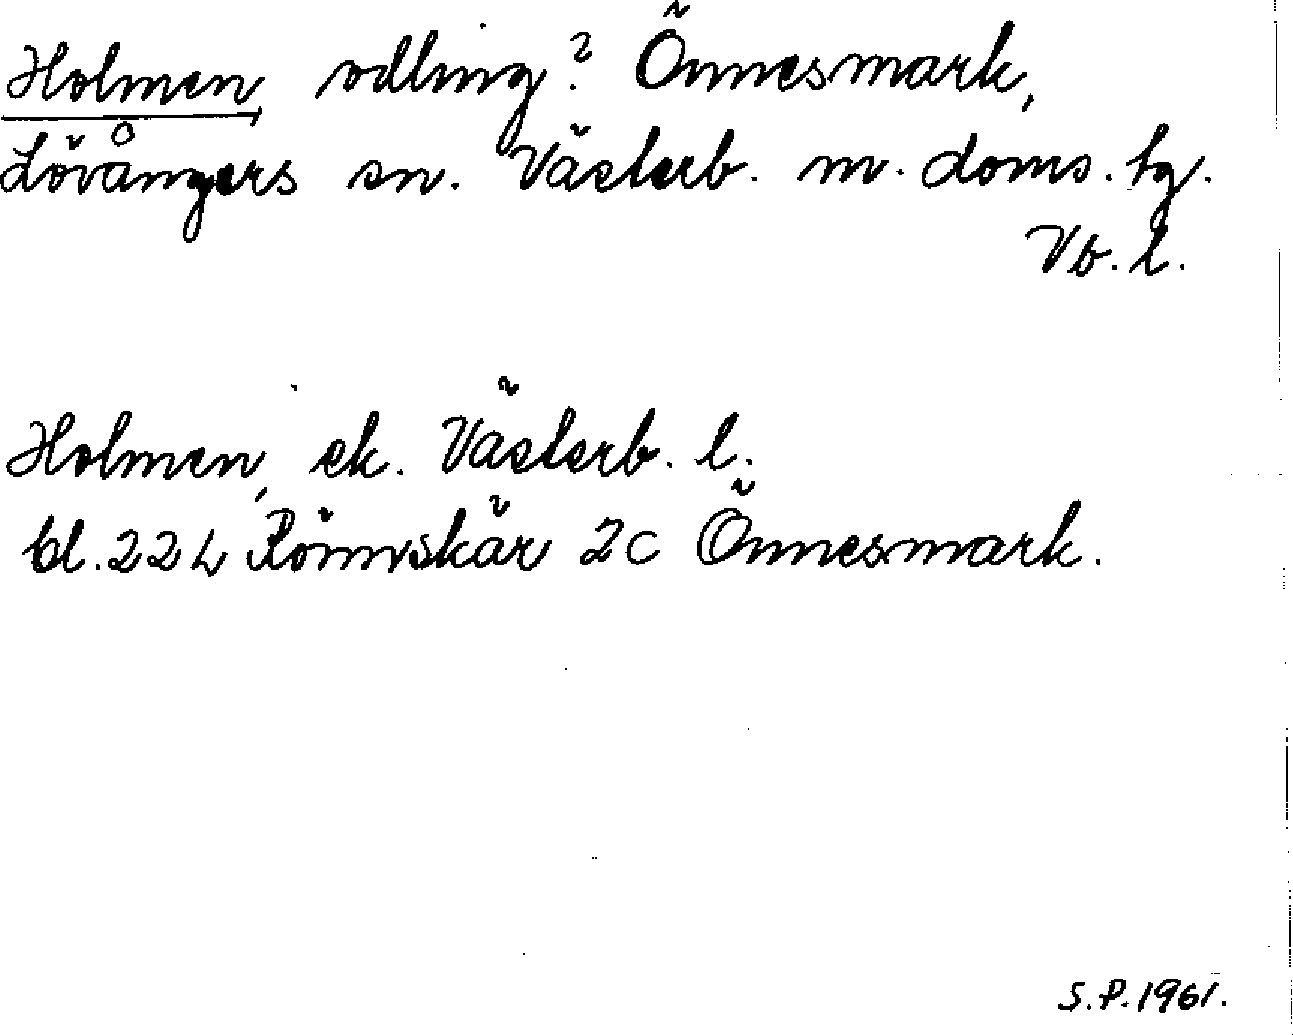 Holmen, odling? Önnesmark,
Lövångers sn. Västerb. m. doms. tg.
Vb. l.
Holmen, ek. Västerb. l.
bl. 22 L Rönnskär 2c Önnesmark.
S.P. 1961.